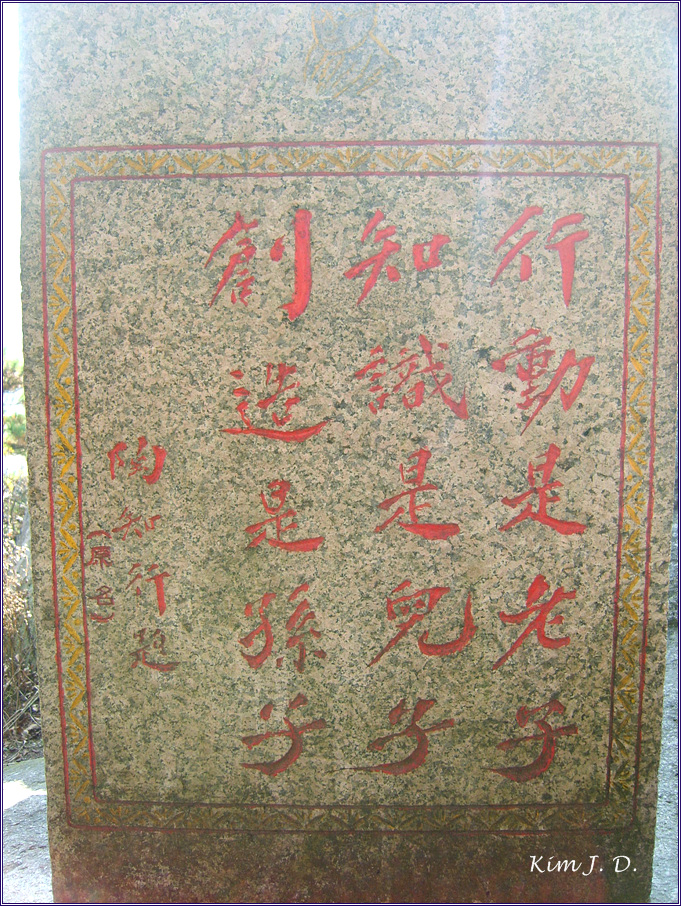 行動是老子
知識是兒子
創造是孫子
陶知行題
(原名)
Kim J. D.